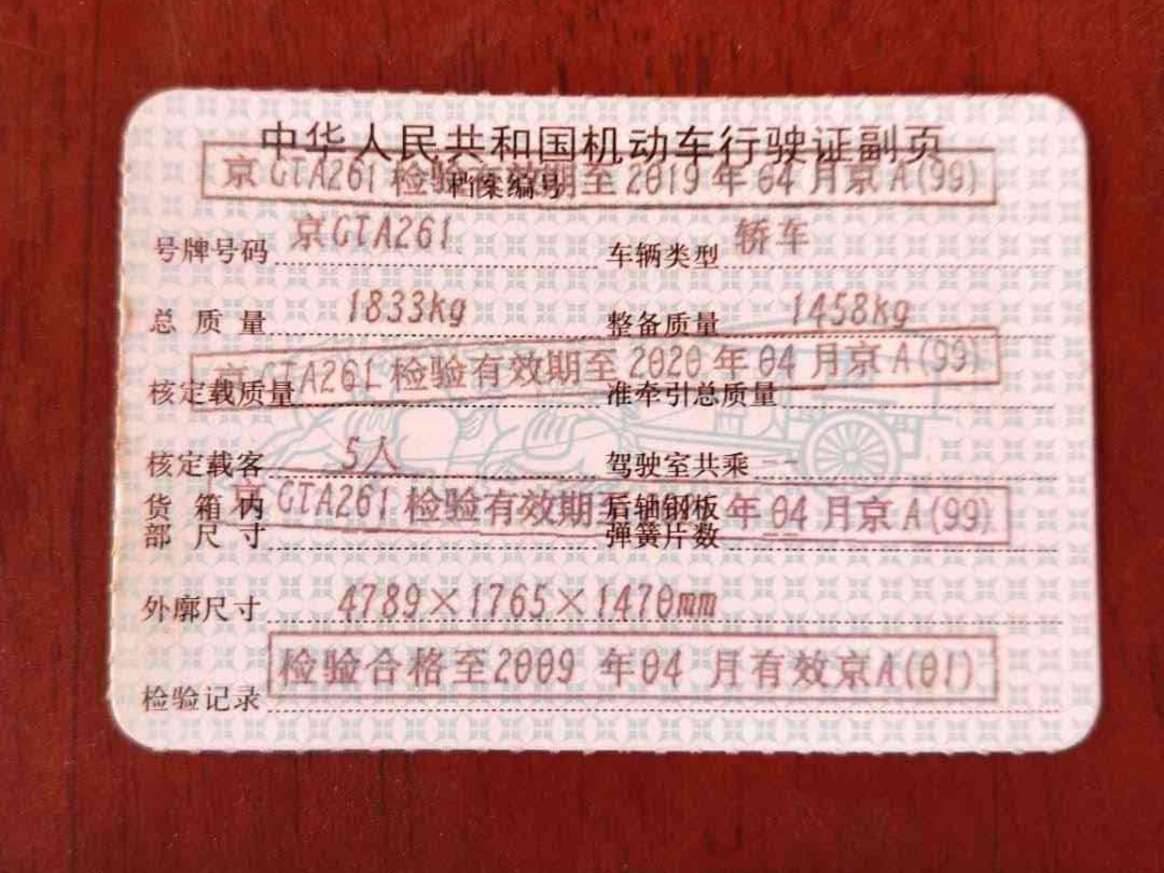 中华人民共和国机动车行驶证副页
京GTA261检验有效期至2019年04月京A(99)
档案编号
号牌号码 京GTA261 车辆类型 轿车
总质量 1833kg 整备质量 1458kg
京GTA261检验有效期至2020年04月京A(99)
核定载质量 准牵引总质量
核定载客 5人 驾驶室共乘 --
京GTA261检验有效期至 年04月京A(99)
货箱内部尺寸 后轴钢板弹簧片数 --
外廓尺寸 4789×1765×1470mm
检验合格至2009 年04 月有效京A(01)
检验记录